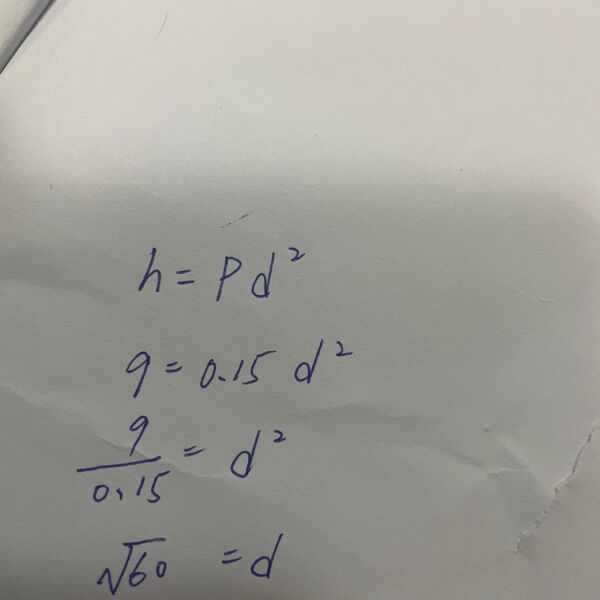 h = Pd²
9 = 0.15 d²
9/0.15 = d²
√60 = d